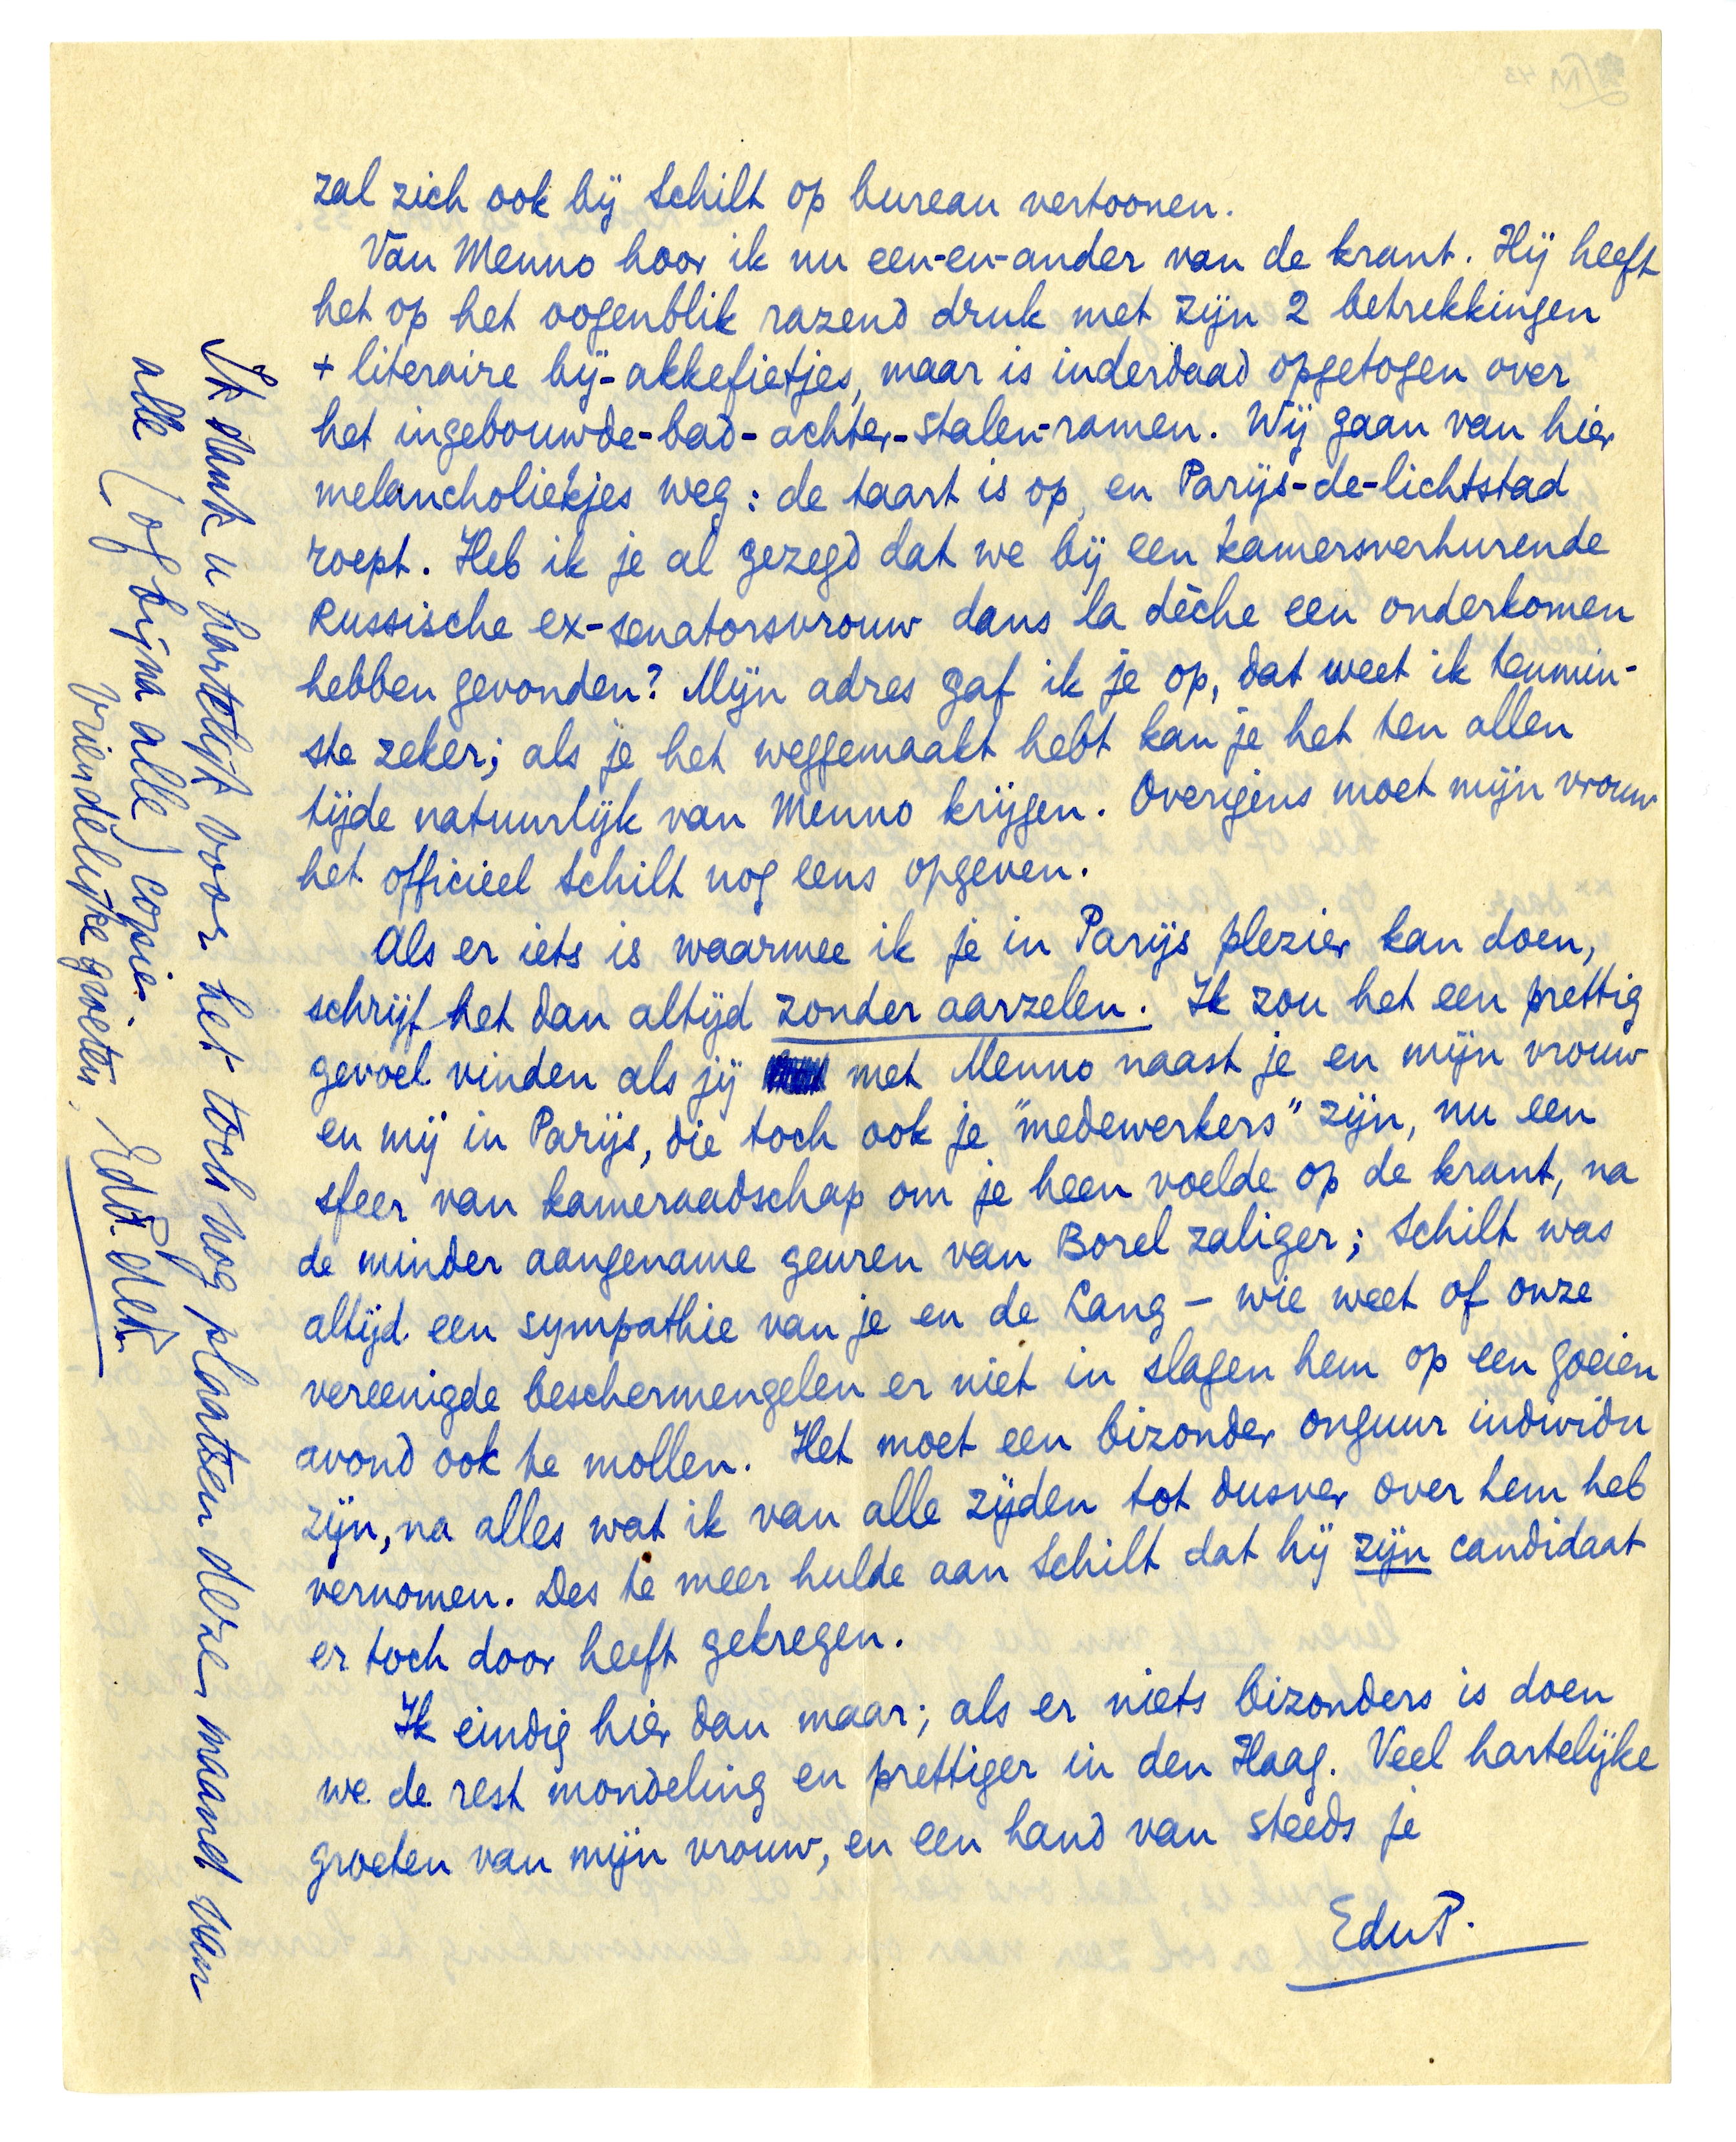 zal zich ook bij Schilt op bureau vertoonen.
Van Menno hoor ik nu een-en-ander van de krant. Hij heeft
het op het oogenblik razend druk met zijn 2 betrekkingen
+ literaire bij-akkefietjes, maar is inderdaad opgetogen over
het ingebouwde-bad-achter-stalen-ramen. Wij gaan van hier
melancholiekjes weg: de taart is op, en Parijs-de-lichtstad
roept. Heb ik je al gezegd dat we bij een kamersverhurende
Russische ex-senatorsvrouw dans la dèche een onderkomen
hebben gevonden? Mijn adres gaf ik je op, dat weet ik tenmin-
ste zeker; als je het weggemaakt hebt kan je het ten allen
tijde natuurlijk van Menno krijgen. Overigens moet mijn vrouw
het officieel Schilt nog eens opgeven.
Als er iets is waarmee ik je in Parijs plezier kan doen,
schrijf het dan altijd zonder aarzelen. Ik zou het een prettig
gevoel vinden als jij met Menno naast je en mijn vrouw
en mij in Parijs, die toch ook je "medewerkers" zijn, nu een
sfeer van kameraadschap om je heen voelde op de krant, na
de minder aangename geuren van Borel zaliger; Schilt was
altijd een sympathie van je en de Lang – wie weet of onze
vereenigde beschermengelen er niet in slagen hem op een goeien
avond ook te mollen. Het moet een bizonder onguur individu
zijn, na alles wat ik van alle zijden tot dusver over hem heb
vernomen. Des te meer hulde aan Schilt dat hij zijn candidaat
er toch door heeft gekregen.
Ik eindig hier dan maar; als er niets bizonders is doen
we de rest mondeling en prettiger in den Haag. Veel hartelijke
groeten van mijn vrouw, en een hand van steeds je
EduP.
Ik dank u hartelijk voor het toch nog plaatsen deze maand van
alle (of bijna alle) copie.
Vriendelijke groeten,